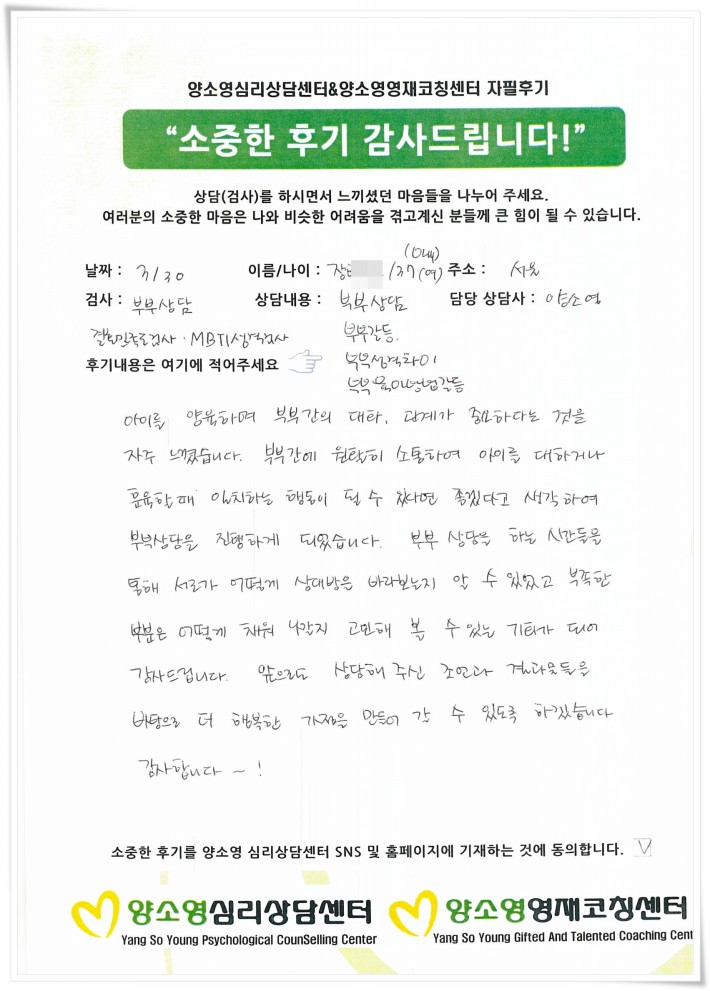 양소영심리상담센터&양소영영재코칭센터 자필후기
“소중한 후기 감사드립니다!”
상담(검사)를 하시면서 느끼셨던 마음들을 나누어 주세요.
여러분의 소중한 마음은 나와 비슷한 어려움을 겪고계신 분들께 큰 힘이 될 수 있습니다.
날짜 : 3/30 이름/나이 : 장 /37 (여) 주소 : 서울
검사 : 부부상담 상담내용 : 부부상담 담당 상담사 : 양소영
결혼만족도검사 · MBTI성격검사 부부갈등.
후기내용은 여기에 적어주세요 부부성격차이
부부 육아방법갈등
아이를 양육하며 부부간의 대화, 관계가 중요하다는 것을
자주 느꼈습니다. 부부간에 원활히 소통하여 아이를 대하거나
훈육할때 일치하는 행동이 될 수 있다면 좋겠다고 생각하여
부부상담을 진행하게 되었습니다. 부부 상담을 하는 시간들을
통해 서로가 어떻게 상대방을 바라보는지 알 수 있었고 부족한
부분은 어떻게 채워 나갈지 고민해 볼 수 있는 기회가 되어
감사드립니다. 앞으로도 상담해 주신 조언과 결과물들을
바탕으로 더 행복한 가정을 만들어 갈 수 있도록 하겠습니다
감사합니다 ~ !
소중한 후기를 양소영 심리상담센터 SNS 및 홈페이지에 기재하는 것에 동의합니다. V
양소영심리상담센터 양소영영재코칭센터
Yang So Young Psychological CounSelling Center Yang So Young Gifted And Talented Coaching Cent